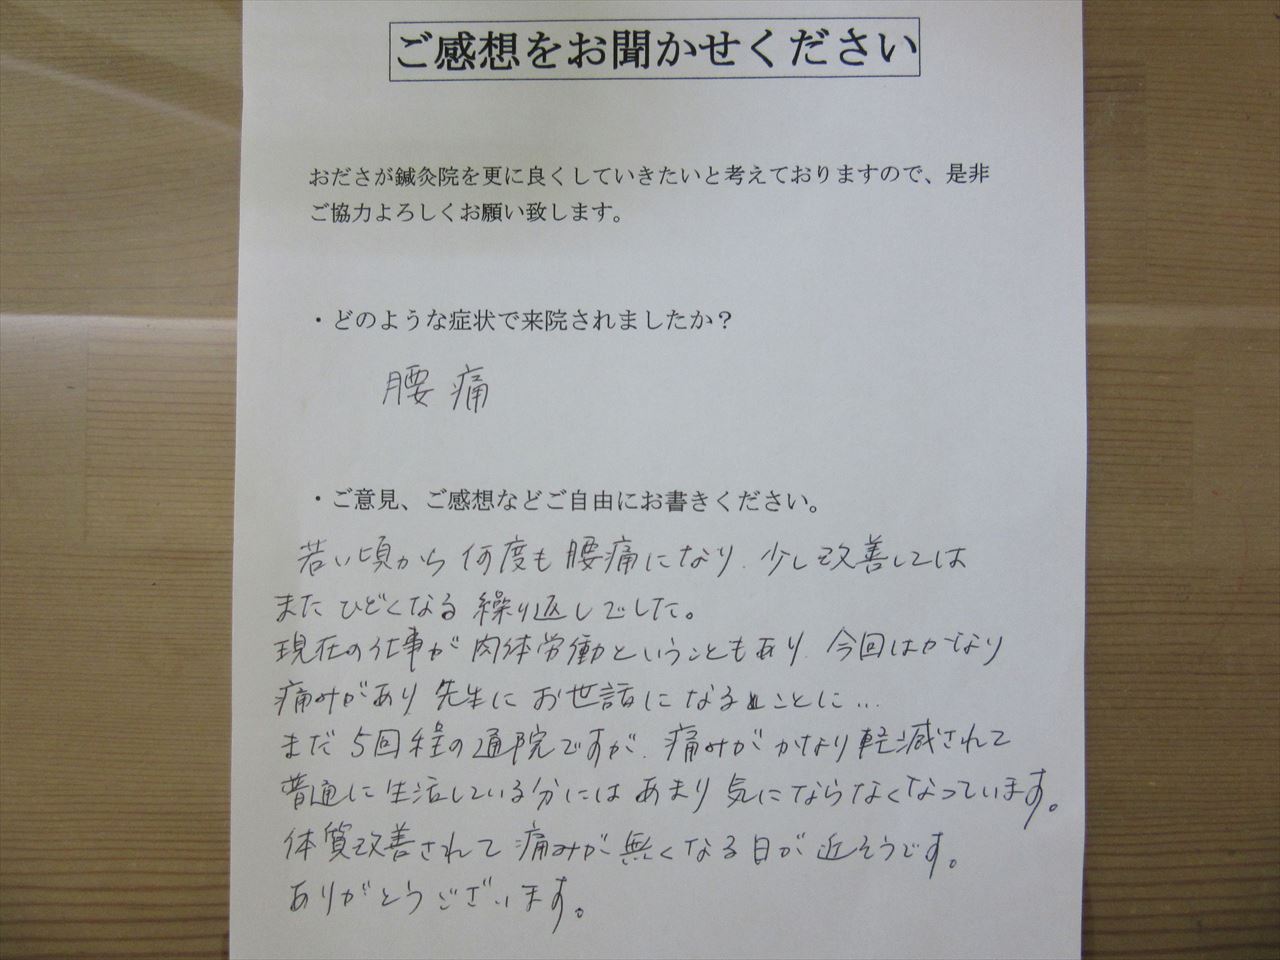 ご感想をお聞かせください
おださが鍼灸院を更に良くしていきたいと考えておりますので、是非
ご協力よろしくお願い致します。
・どのような症状で来院されましたか？
腰痛
・ご意見、ご感想などご自由にお書きください。
若い頃から何度も腰痛になり、少し改善しては
またひどくなる繰り返しでした。
現在の仕事が肉体労働ということもあり、今回はかなり
痛みがあり先生にお世話になることに…
まだ5回程の通院ですが、痛みがかなり軽減されて
普通に生活している分にはあまり気にならなくなっています。
体質改善されて痛みが無くなる日が近そうです。
ありがとうございます。